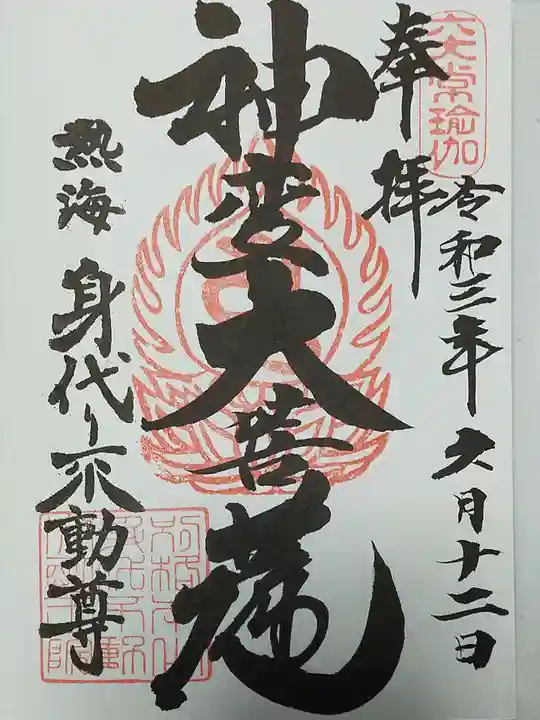 六大常瑜伽
奉拝
令和三年六月十二日
神変大菩薩
熱海 身代り不動尊